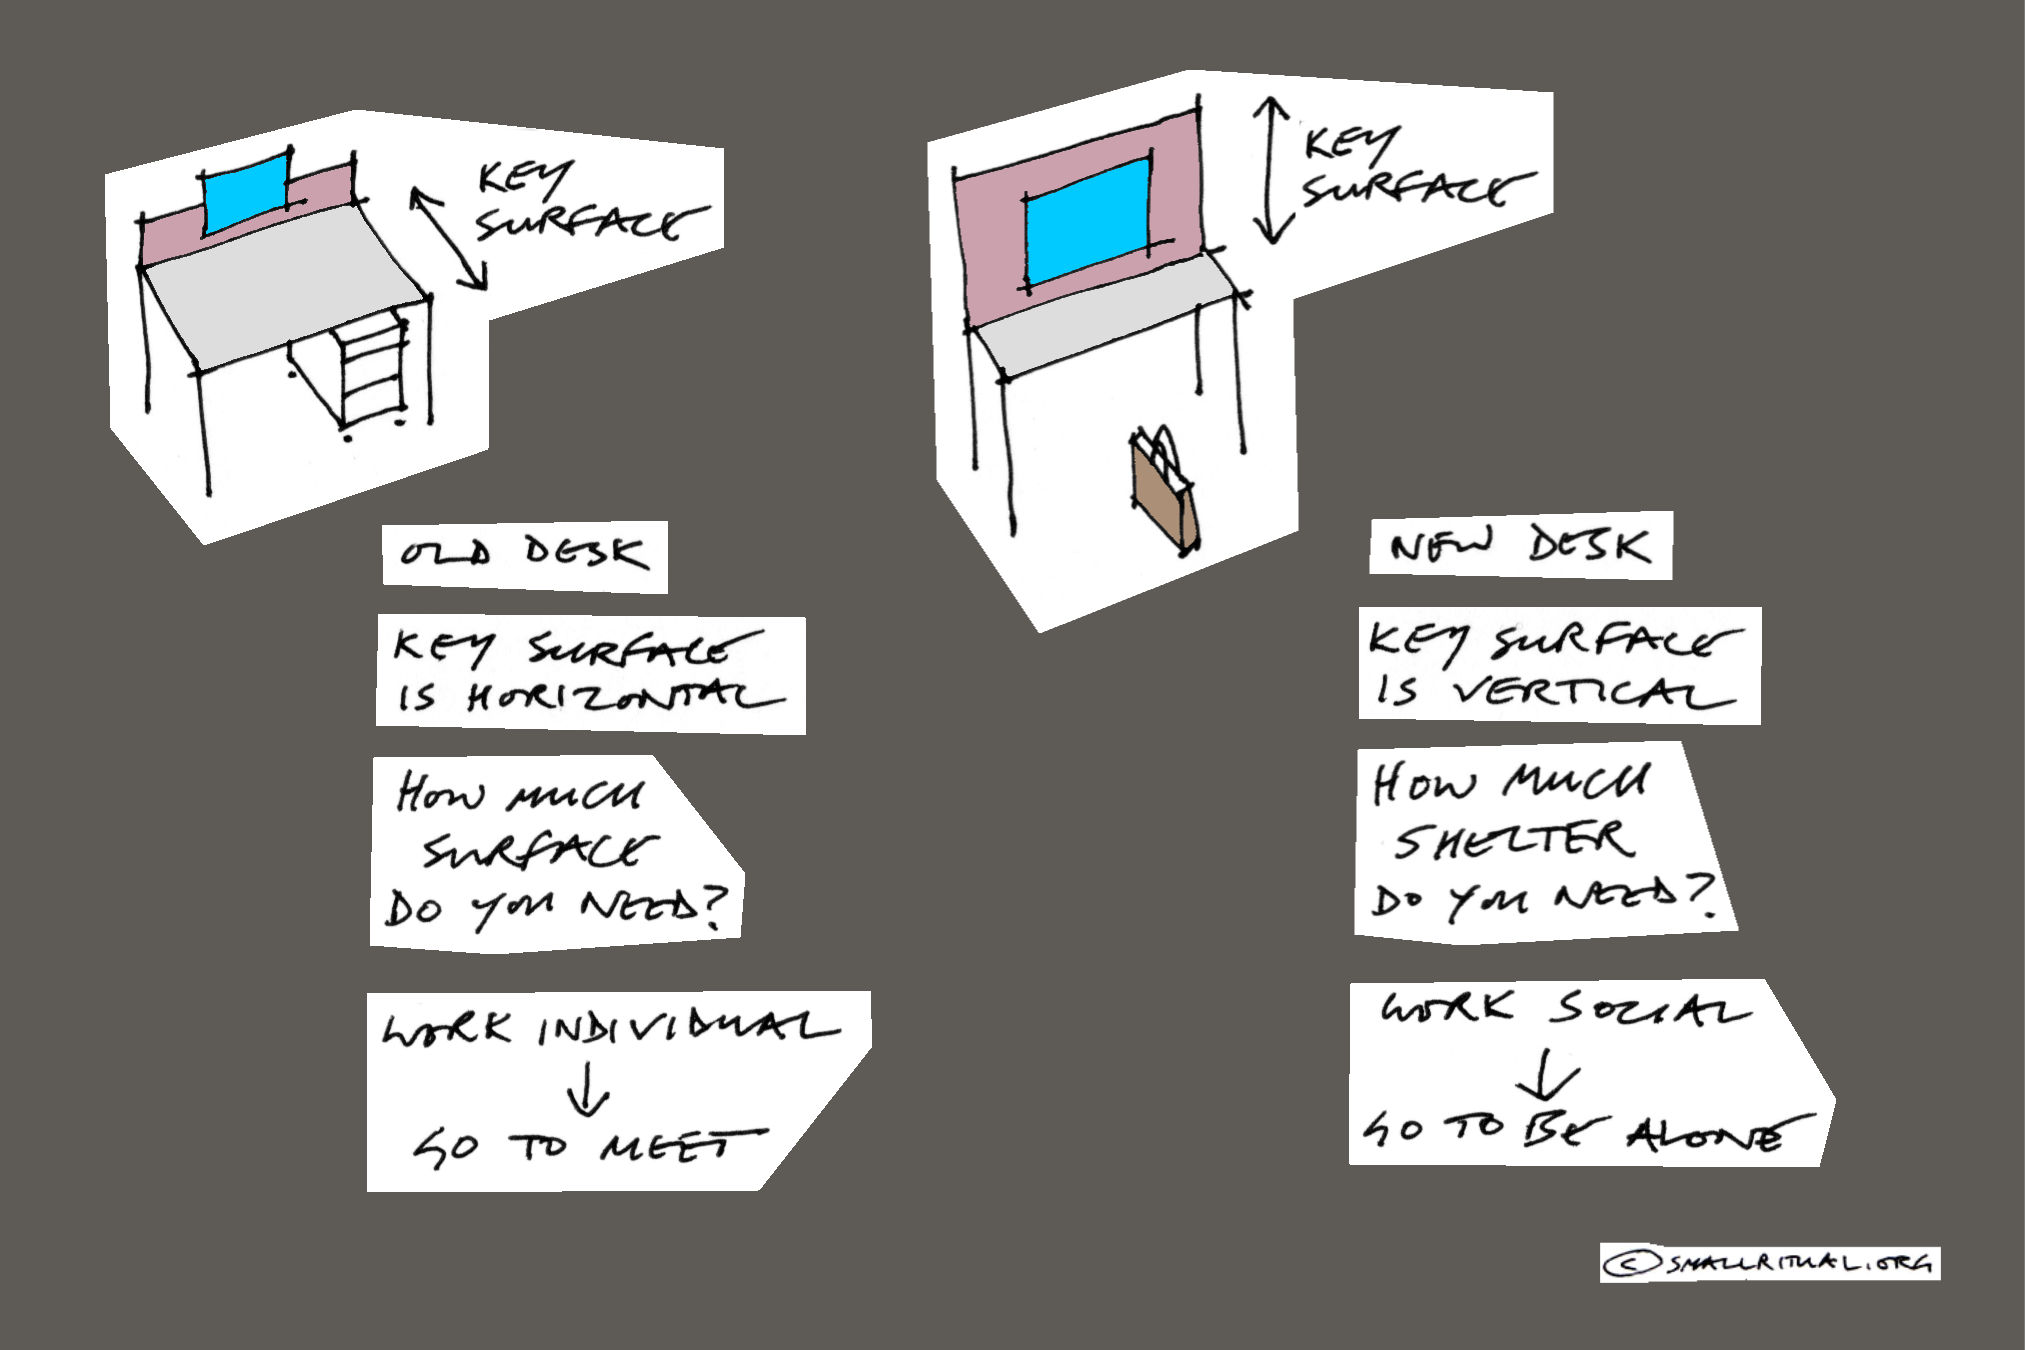 KEY
SURFACE
OLD DESK
KEY SURFACE
IS HORIZONTAL
HOW MUCH
SURFACE
DO YOU NEED?
WORK INDIVIDUAL
↓
GO TO MEET
KEY
SURFACE
NEW DESK
KEY SURFACE
IS VERTICAL
HOW MUCH
SHELTER
DO YOU NEED?
WORK SOCIAL
↓
GO TO BE ALONE
© SMALLRITUAL.ORG